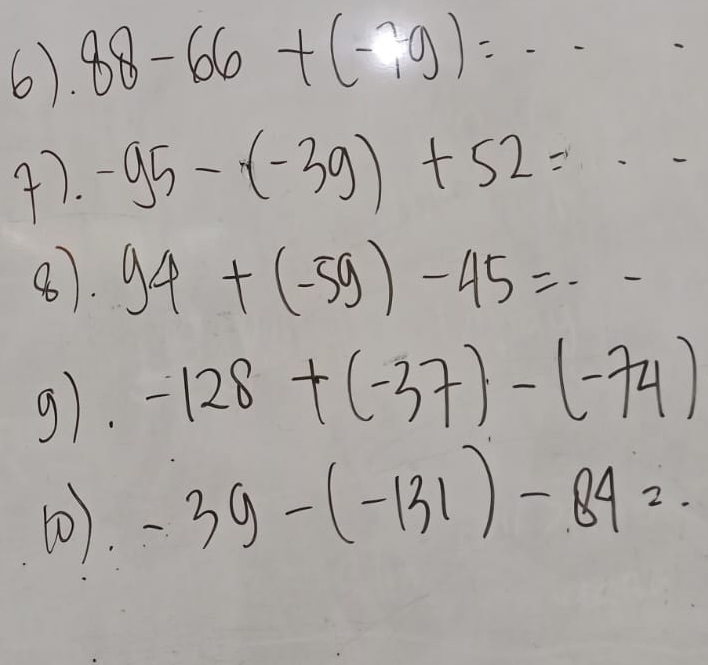 6). 88 - 66 + (-79) = . . .
7). -95 - (-39) + 52 = . . -
8). 94 + (-59) - 45 = . -
9). -128 + (-37) - (-74)
10). -39 - (-131) - 84 = .